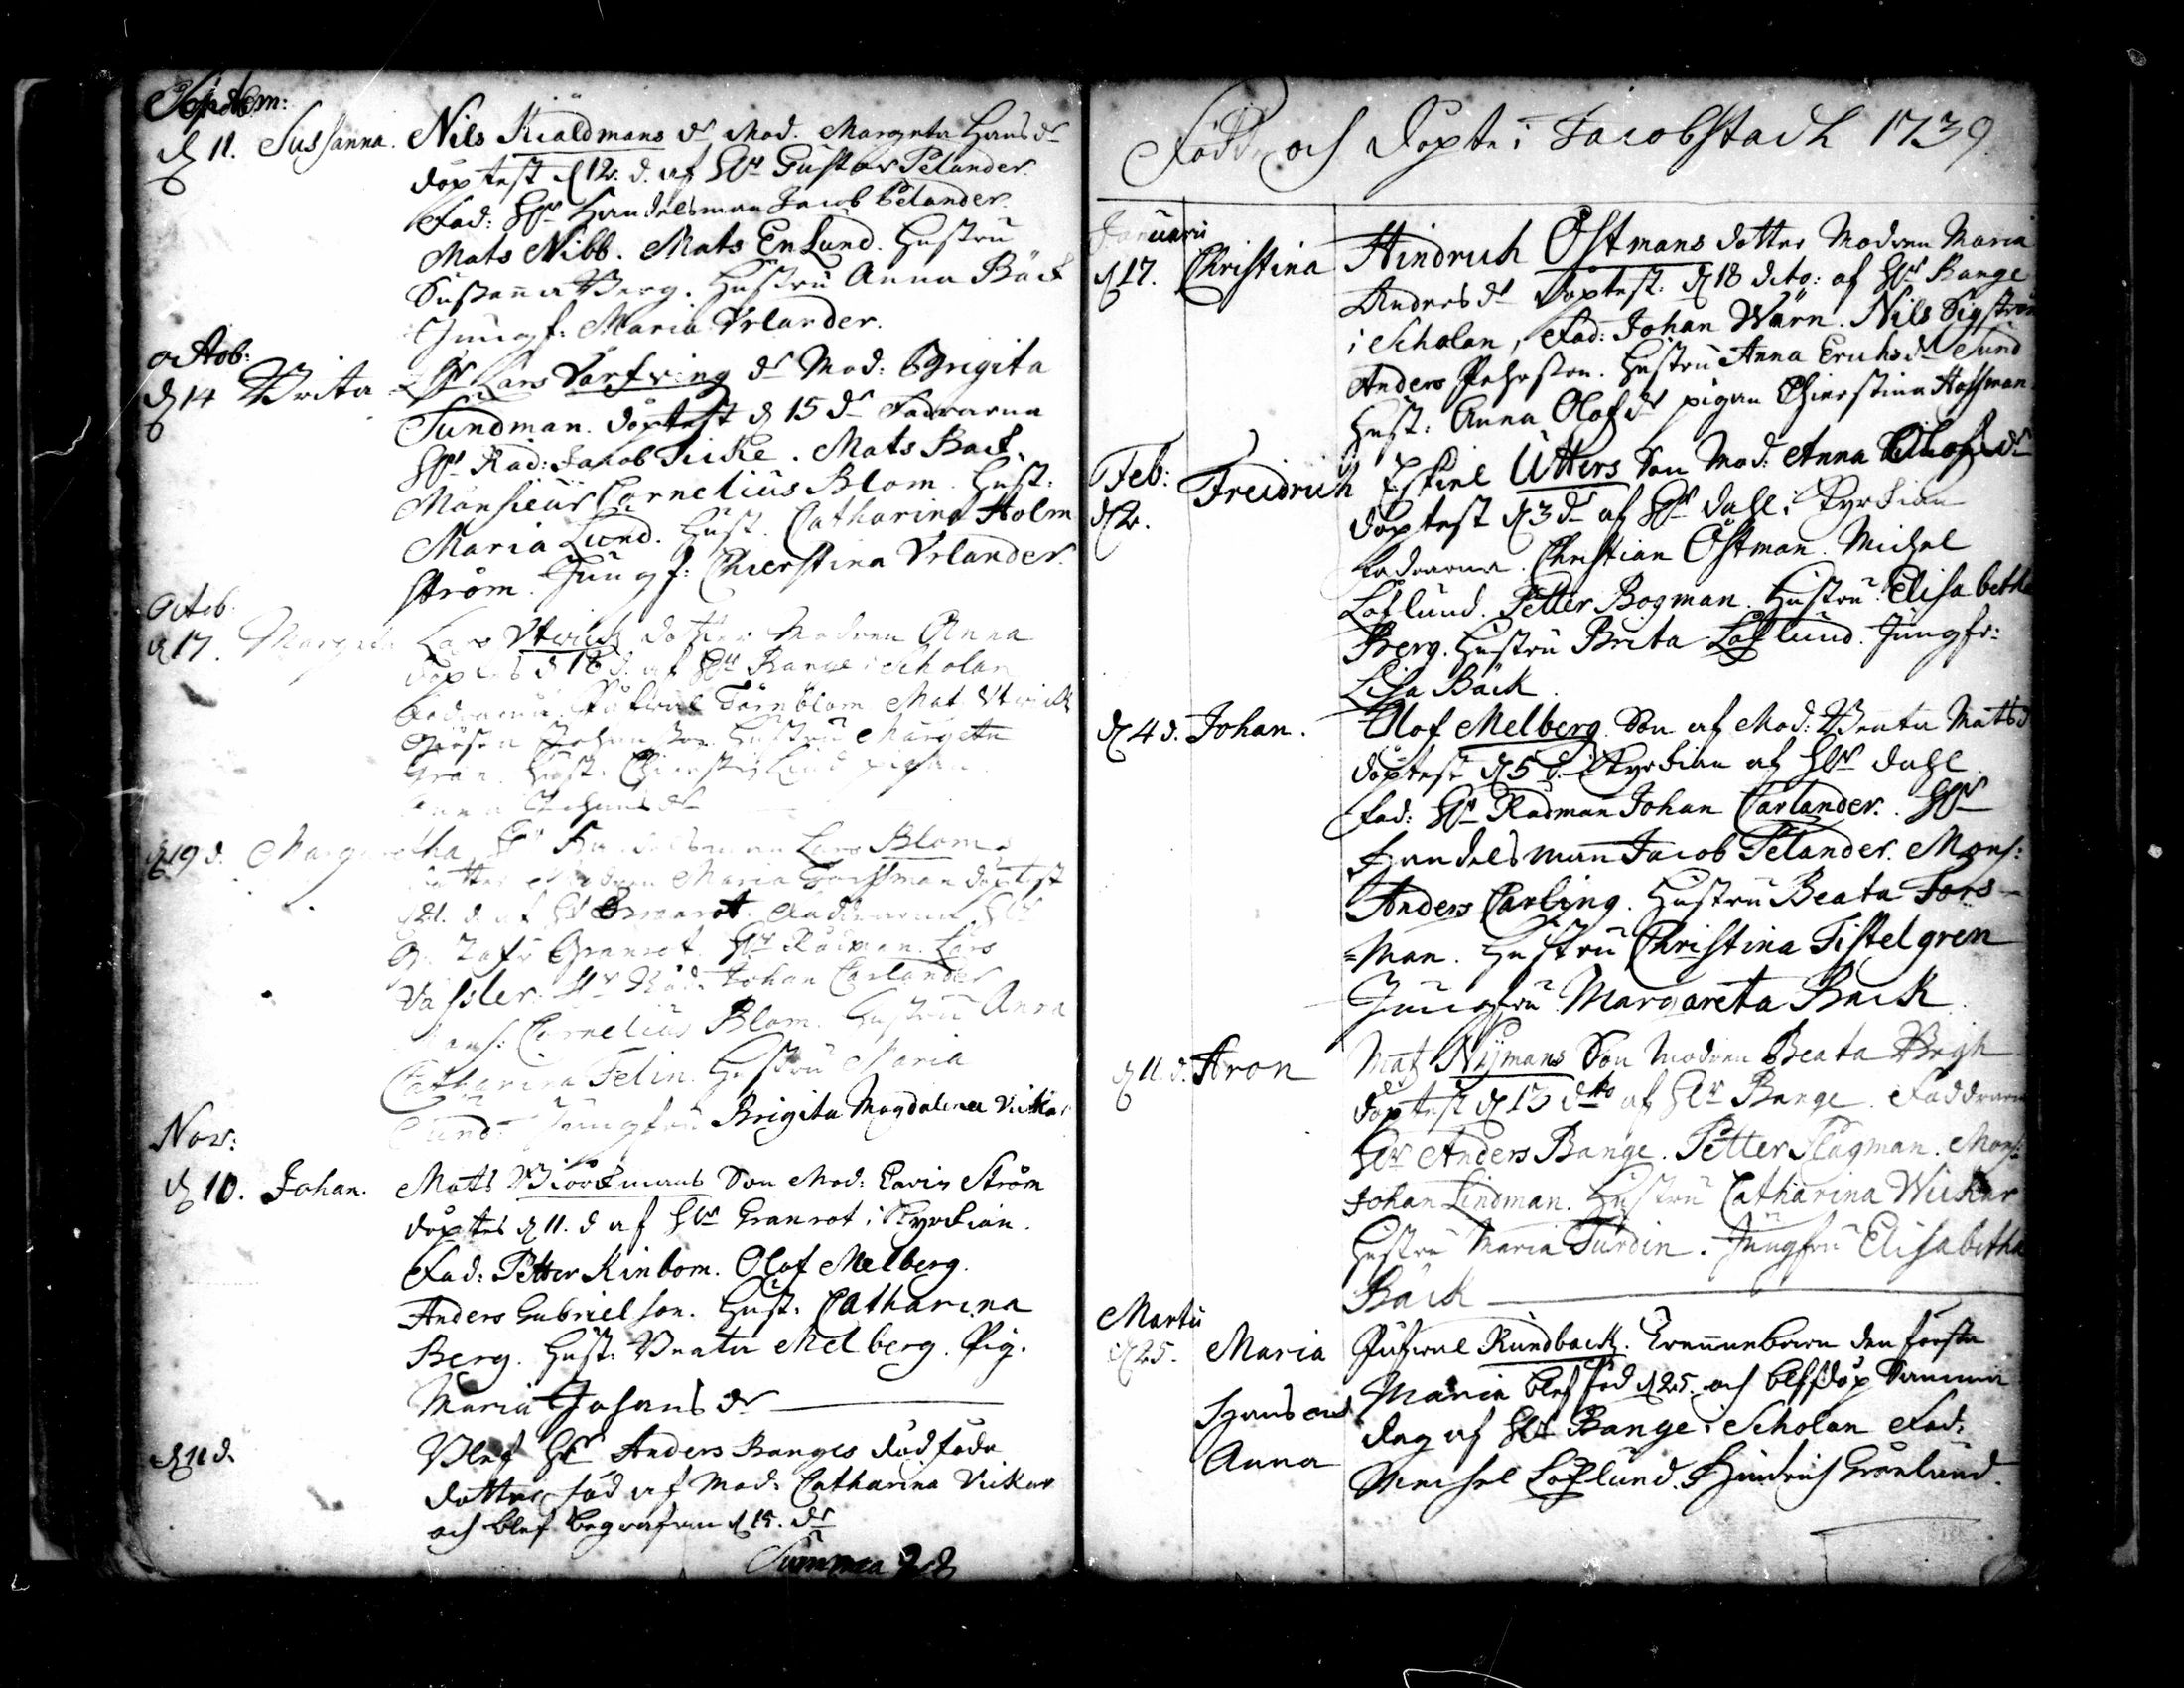 Septem:
d 11. Sussanna. Nils Kialdmans dr Mod. Margeta Hansdr
döptest d 12. d. af Hr Gustav Pelander.
Fad: Hr Handelsman Jacob Pelander.
Mats Nibb. Mats Enlund. Hustru
Susanna Berg. Hustru Anna Bäck
Jungf: Maria Urlander.
octob:
d 14 Brita Hr Lars Varfving dr Mod: Brigita
Sundman. döptest d 15 dr Fadrarna
Hr Råd: Jacob Ticke. Mats Back.
Monsieur Cornelius Blom. Hust:
Maria Lund. Hust. Catharina Holm
ström. Jungf: Chierstina Urlander.
Octob.
d 17. Margeta Lars Utwick dotter Modren Anna
döptes d 18 d. af Hr Bange i Scholan
Fadrarna Törnblom Mat. Utwick
Johansson Hustru Margeta
Gran. Hust. Lind pigan
Johansdr
d 19 d. Margretha Hr Handelsman Lars Bloms
dotter Modren Maria Forssman döptest
d 21. d. af Hr Granrot. Faddrarna Hr
Granrot. Hr Rådman Lars
Vassler. Hr Råd: Johan Carlander
Mons: Cornelius Blom. Hustru Anna
Catharina Felin. Hustru Maria
Lund. Jungfru Brigita Magdalena Vickar
Nov:
d 10. Johan. Mats Biörkmans Son Mod: Carin Ström
döptes d 11. d af Hr Granrot i Kyrkian.
Fad: Petter Kinbom. Olof Melberg.
Anders Gabrielson. Hust. Catharina
Berg. Hust. Beata Melberg. Pig.
Maria Johansdr
d 11 d. Blef Hr Anders Banges dödföda
dotter född af Mod: Catharina Vickar
och blef begrafven d 15. dr
Summa 28
Född och Döpte i Jacobstadh 1739.
Januarii
d 17. Christina Hindrich Östmans dotter Modren Maria
Andersdr Döptest. d 18 dito: af Hr Bange
i Scholan, Fad: Johan Wärn. Nils Sigström
Anders Pehrsson. Hustru Anna Erichsdr Sund
Hust: Anna Olofsdr pigan Chierstina Hossman
Feb:
d 2. Freidrich Eskiel Utters Son Mod: Anna Olofsdr
döptest d 3 dr af Hr Dahl i Kyrkian
Fadrarna. Christian Östman. Michel
Löflund. Petter Bogman. Hustru Elisabetha
Berg. Hustru Brita Löflund. Jungfr:
Lisa Bäck.
d 4 d. Johan. Olof Melberg Son af Mod: Beata Matsd
döptest d 5 d. i Kyrkian af Hr Dahl
Fad: Hr Rådman Johan Carlander. Hr
Handelsman Jacob Pelander. Mons:
Anders Carling. Hustru Beata Fors-
=man. Hustru Christina Tistelgren
Jungfru Margareta Back.
d 11. d. Aron Mat Nÿmans Son Modren Beata Brigh
döptest d 13 dito af Hr Bange. Faddrarna
Hr Anders Bange. Petter Plagman. Mons:
Johan Lindman. Hustru Catharina Wickar
Hustru Maria Turdin. Jungfru Elisabetha
Bäck
Martii
d 25. Maria Rundback. Trenne barn den första
Maria blef född d 25. och blef döp Samma
Hans och dag af Hr Bange i Scholan Fad:
Anna Michel Löflund. Hindrich Grönlund.